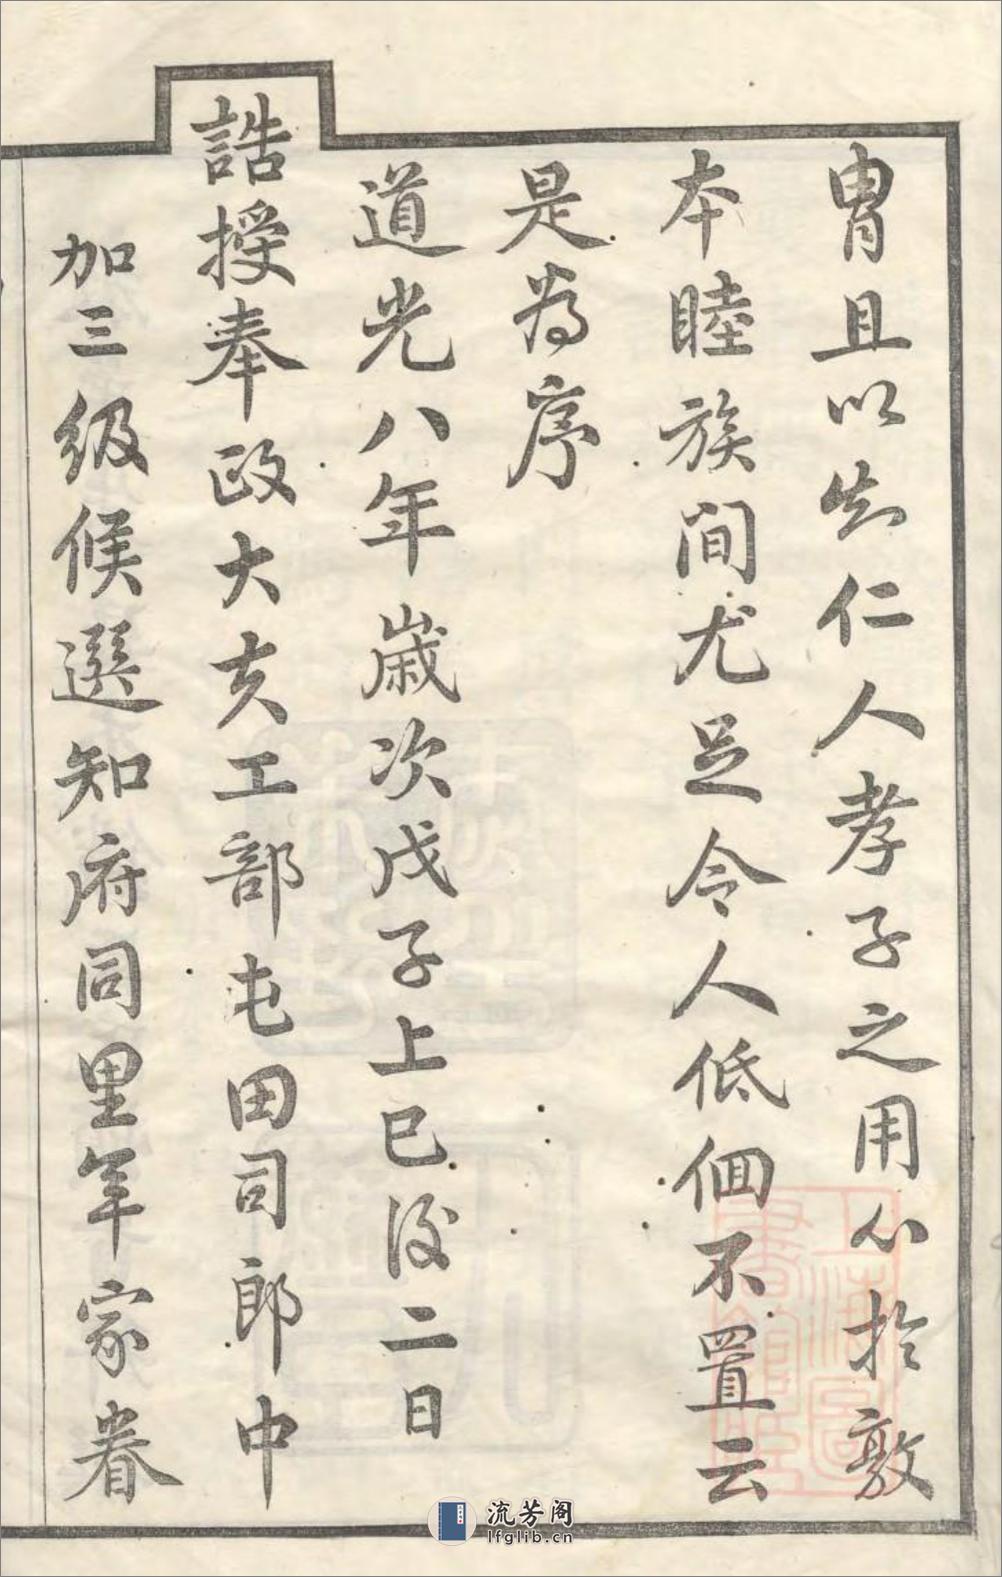 胄且以知仁人孝子之用心於敦
本睦族間尤足令人低佪不置云
是為序
道光八年歲次戊子上巳後二日
誥授奉政大夫工部屯田司郎中
加三級候選知府同里年家眷
上海圖
書館藏
流芳阁
lfglib.cn